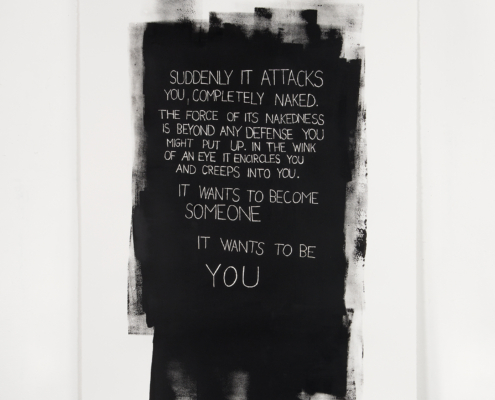 SUDDENLY IT ATTACKS
YOU, COMPLETELY NAKED.
THE FORCE OF ITS NAKEDNESS
IS BEYOND ANY DEFENSE YOU
MIGHT PUT UP. IN THE WINK
OF AN EYE IT ENCIRCLES YOU
AND CREEPS INTO YOU.
IT WANTS TO BECOME
SOMEONE
IT WANTS TO BE
YOU